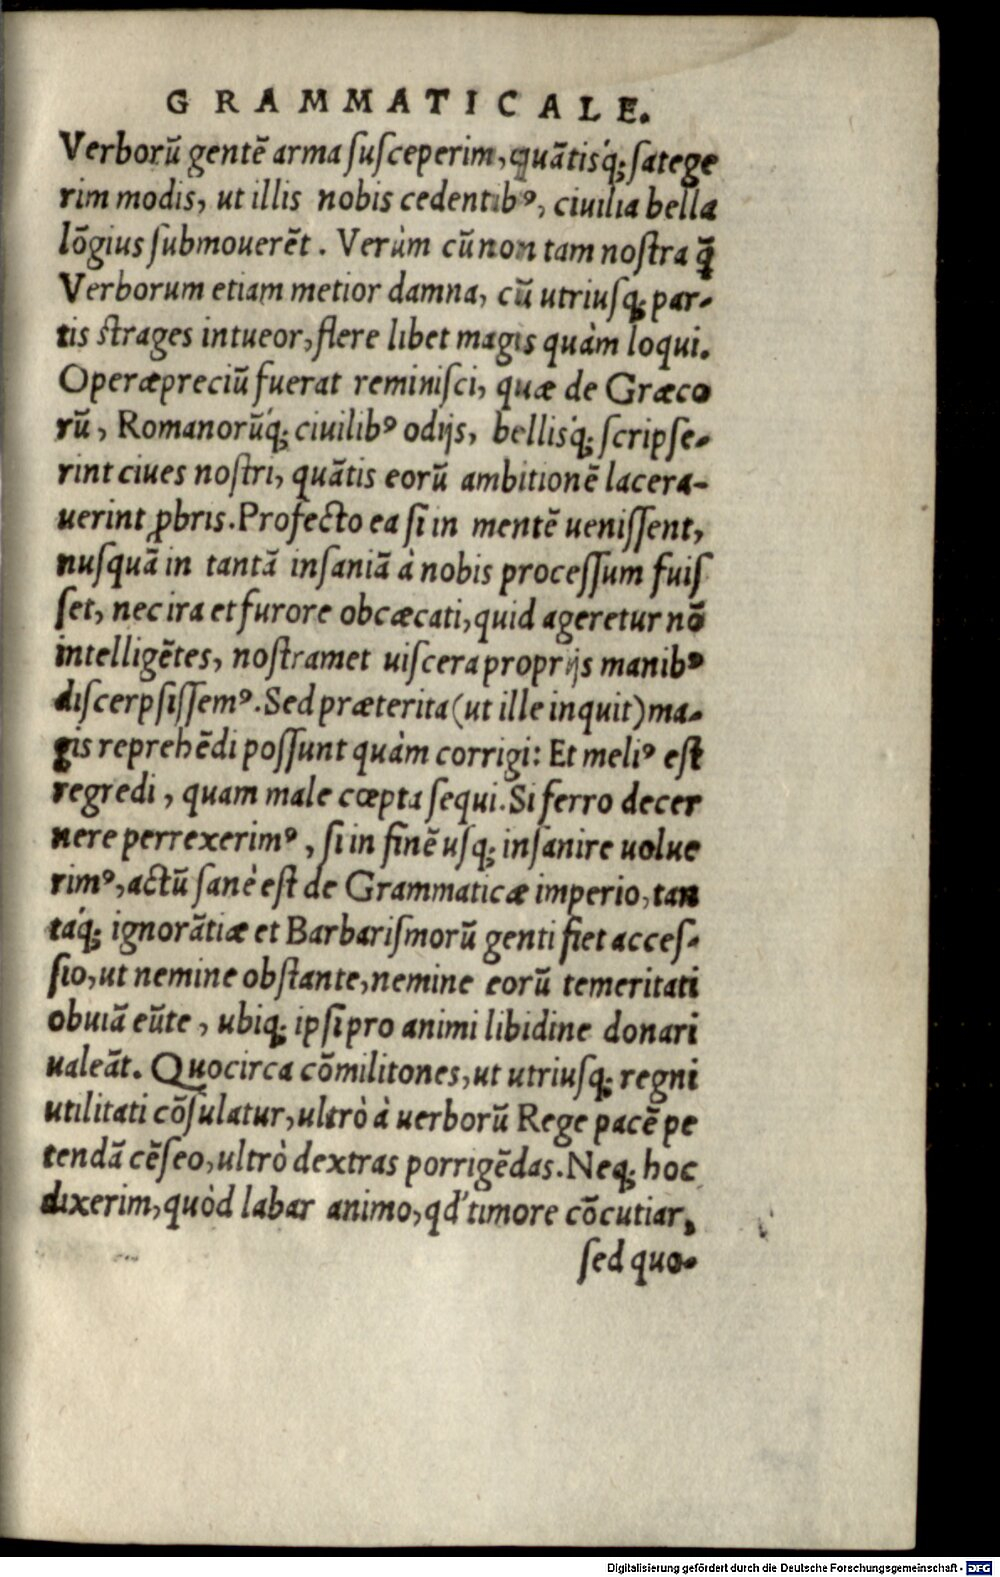 GRAMMATICALE.
Verborū gentē arma ſuſceperim, quātisq́; ſatege
rim modis, ut illis nobis cedentibꝰ, ciuilia bella
lōgius ſubmouerēt. Verùm cū non tam noſtra q̄
Verborum etiam metior damna, cū utriuſq; par-
tis ſtrages intueor, flere libet magis quàm loqui.
Operæpreciū fuerat reminiſci, quæ de Græco
rū, Romanorūq́; ciuilibꝰ odijs, bellisq́; ſcripſe-
rint ciues noſtri, quātis eorū ambitionē lacera-
uerint ꝓbris. Profecto ea ſi in mentē ueniſſent,
nuſquā in tantā inſaniā à nobis proceſſum fuiſ
ſet, nec ira et furore obcæcati, quid ageretur nō
intelligētes, noſtramet uiſcera proprijs manibꝰ
diſcerpſiſſemꝰ. Sed præterita (ut ille inquit) ma-
gis reprehēdi poſſunt quàm corrigi: Et meliꝰ eſt
regredi, quam male cœpta ſequi. Si ferro decer
nere perrexerimꝰ, ſi in finē uſq; inſanire uolue
rimꝰ, actū ſanè eſt de Grammaticæ imperio, tan
táq; ignorātiæ et Barbariſmorū genti fiet acceſ-
ſio, ut nemine obſtante, nemine eorū temeritati
obuiā eūte, ubiq; ipſi pro animi libidine donari
ualeāt. Quocirca cōmilitones, ut utriuſq; regni
utilitati cōſulatur, ultrò à uerborū Rege pacē pe
tendā cēſeo, ultrò dextras porrigēdas. Neq; hoc
dixerim, quòd labar animo, qđ timore cōcutiar,
ſed quo-
Digitalisierung gefördert durch die Deutsche Forschungsgemeinschaft - DFG